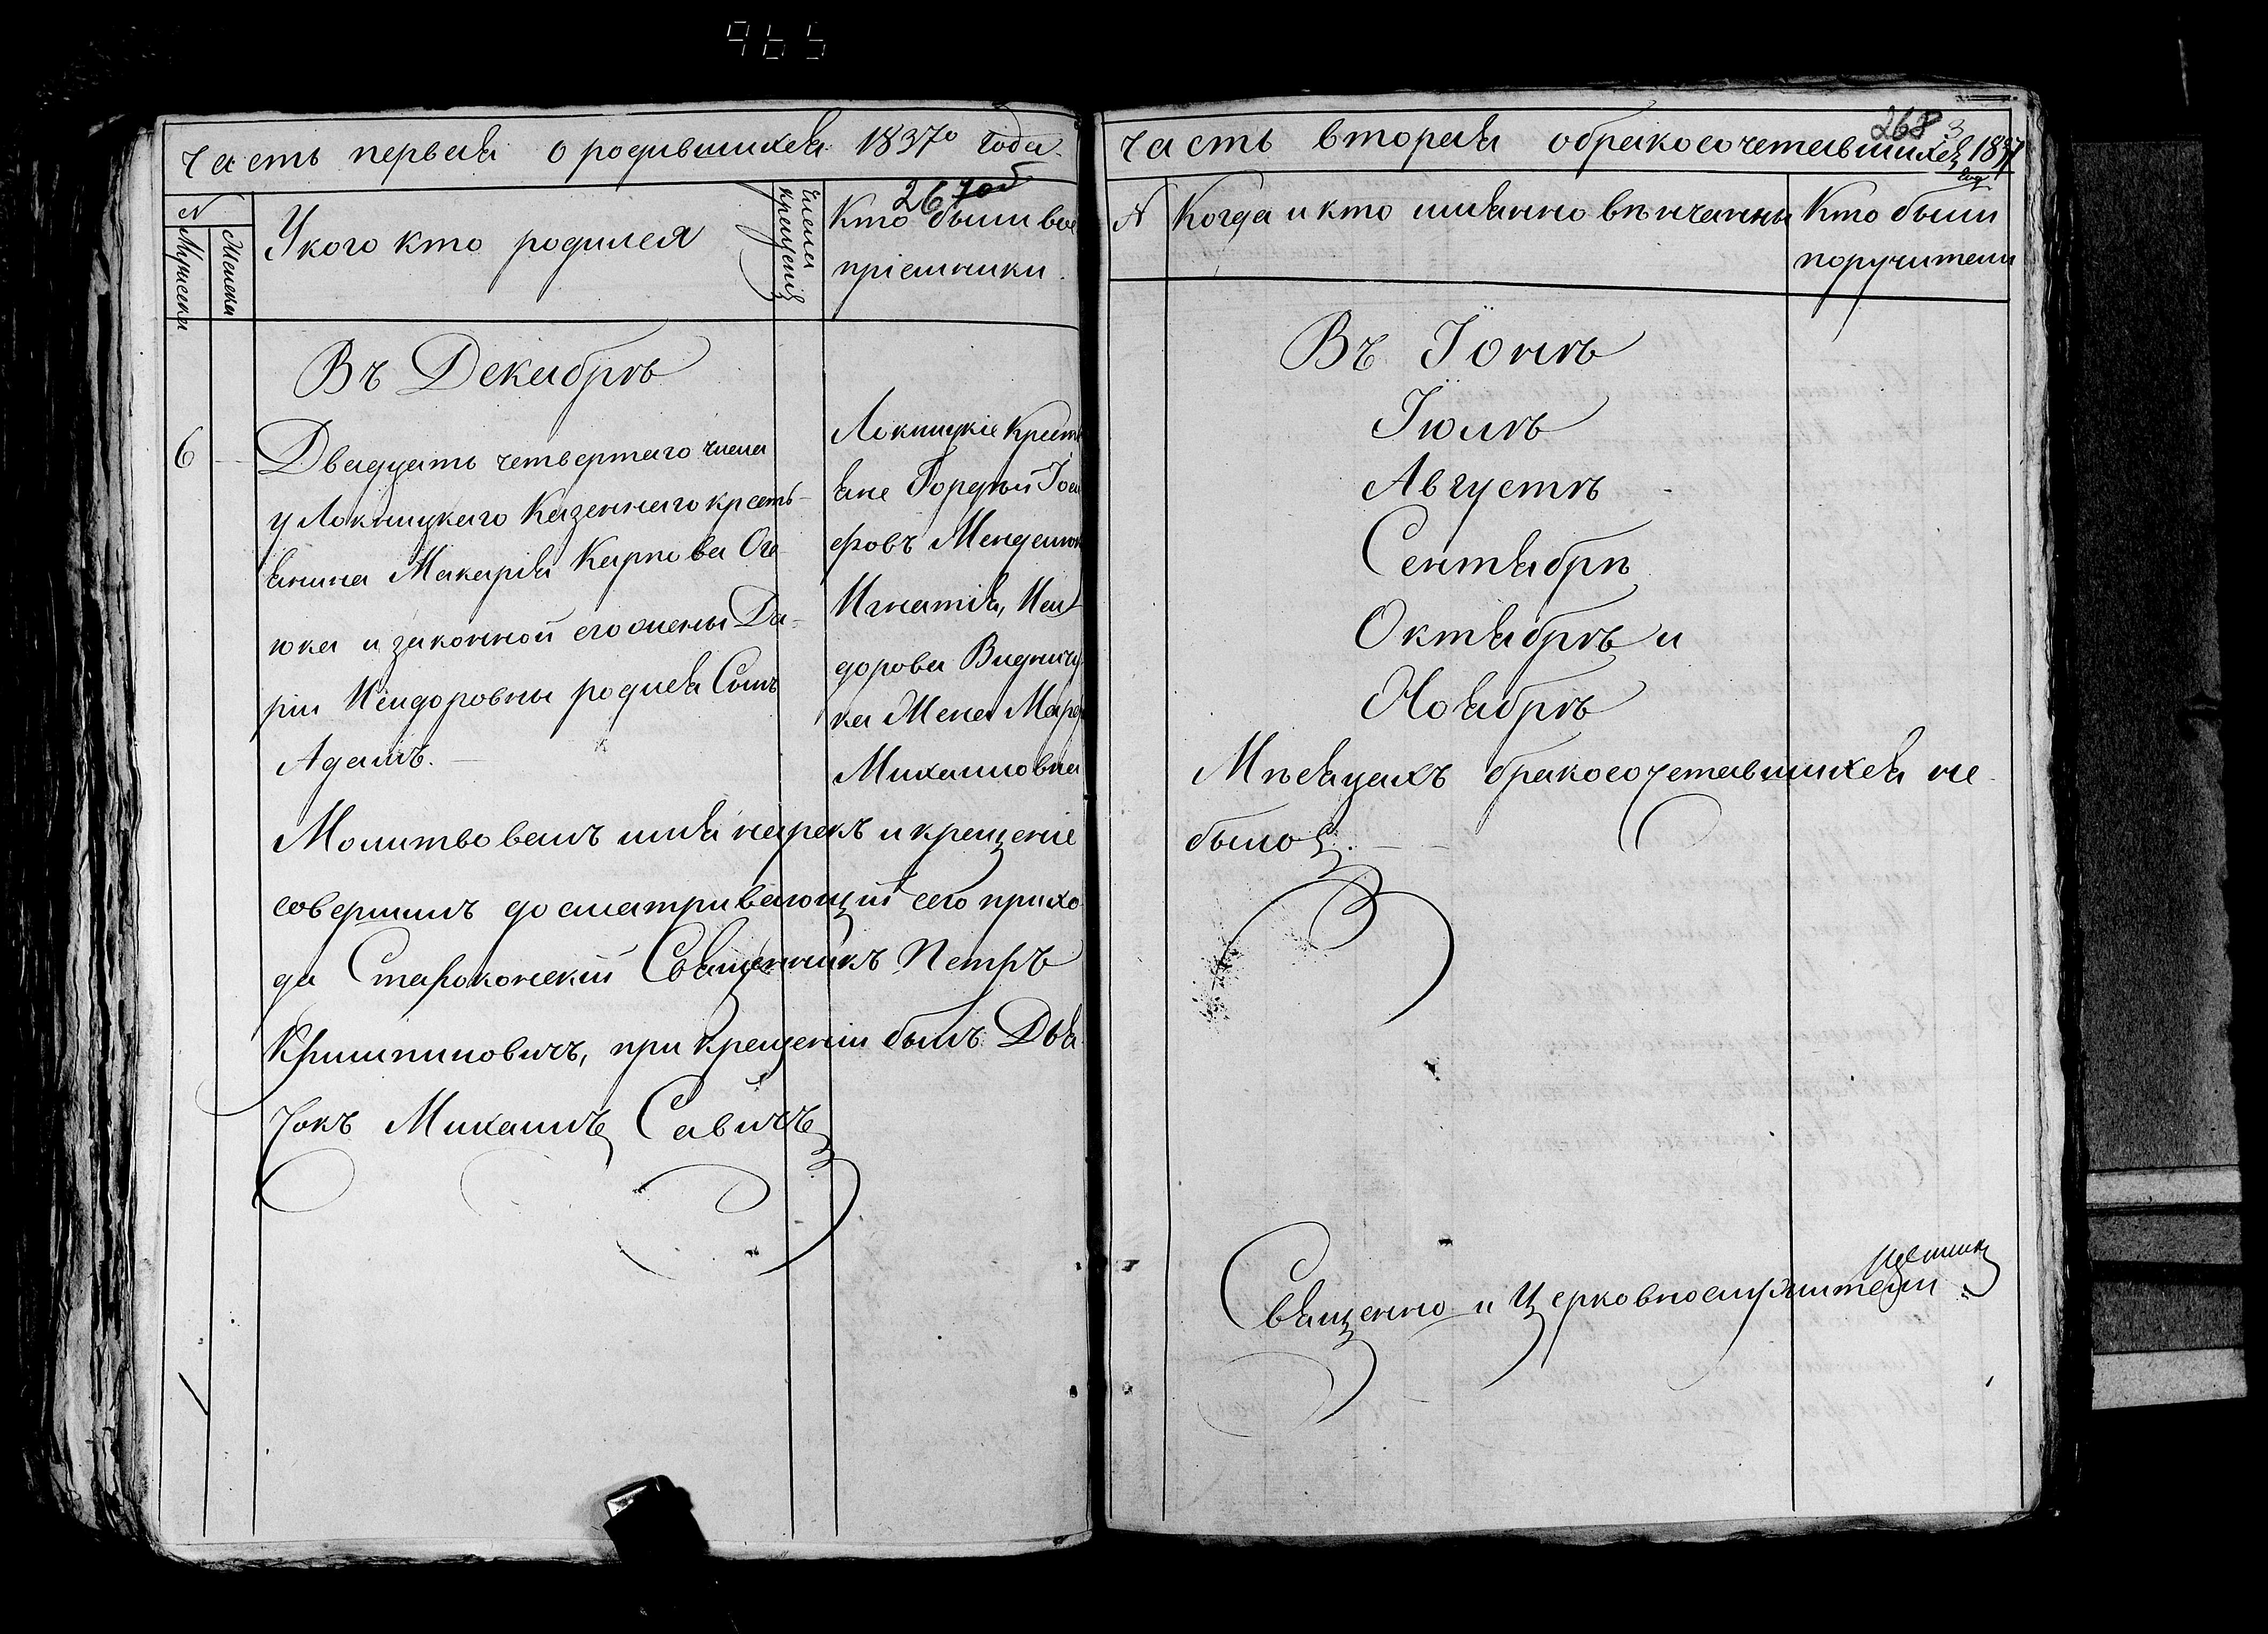 965
Часть первая о родившихся 1837го года.
267 об
N
Мужеска
Женска
У кого кто родился
Числа крещенія
Кто были вос
пріемники.
Въ Декабрѣ
6
Двадцать четвертаго числа
у Локницкаго Казеннаго кресть-
янина Макарія Карпова Оге-
юка и законной его жены Да-
ріи Исидоровны родился Сынъ
Адамъ.
Локницкіе Крестъ
яне Гордѣй Іоси
фовъ
Игнатія, Иси
дорова
ка Жена
Михаиловна
Молитвовалъ имя нарекъ и крещеніе
совершилъ досматривающій сего прихо
да Староконскій Священникъ Петръ
Криштиновичъ, при крещеніи былъ Дья
чокъ Михаилъ Савичъ
268
3
Часть вторая о бракосочетавшихся 1837
год
N
Когда и кто имянно вѣнчанны
Кто были
поручители
Въ Іюнѣ
Іюлѣ
Августѣ
Сентябрѣ
Октябрѣ и
Ноябрѣ
Мѣсяцахъ бракосочетавшихся не
было.
Священно и Церковнослужители